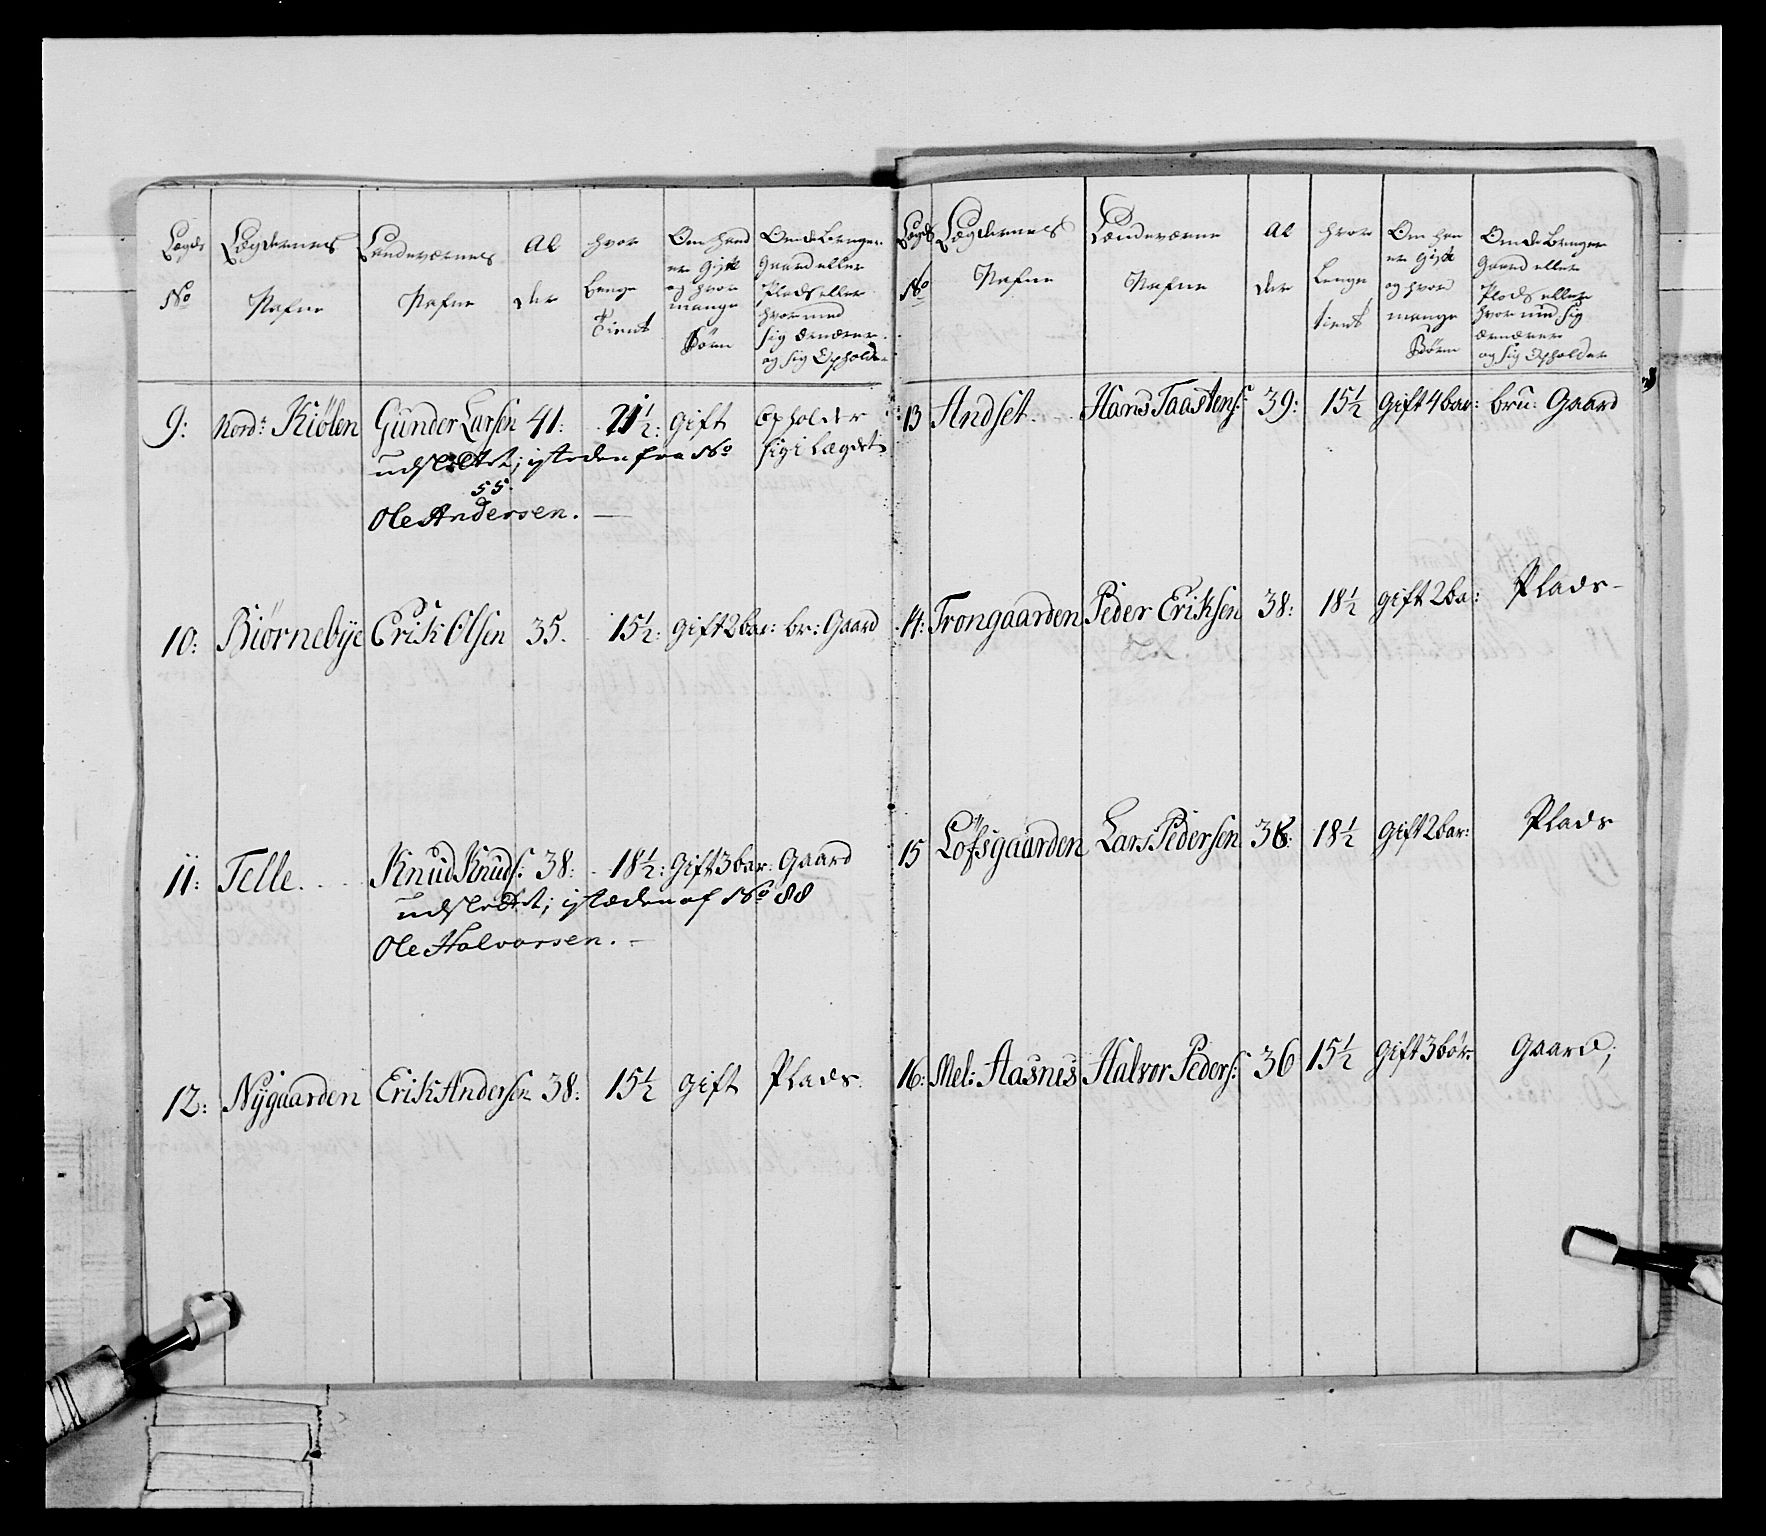 Lægds No | Lægdernes Nafne | Landeværnes Nafne | Al der | hvor Lenge Tient | Om hand er Gift og hvor mange Börn | Om de Bruger Gaard eller Plads eller hvor med sig Ernærer og sig Opholder
9: | Nord: Kiölen | Gunder Larsen | 41: | 21½: | gift | Opholder sig i Lægdet
udslettet; isteden fra No 55.
Ole Andersen. —
10: | Biørnebye | Erik Olsen | 35. | 15½: | gift 2 bar: | br: Gaard
11: | Telle. | Knud Knuds: | 38: | 18½: | Gift 3 bar: | Gaard
udslettet; istæden af No 88
Ole Halvorsen. —
12: | Nÿgaarden | Erik Andersen | 38: | 15½ | gift | Plads
Lægds No | Lægdernes Nafne | Landeværne Nafne | Al der | hvor Lenge tient | Om han er Gift og hvor mange Börn | Om de Bruger Gaard eller Plads eller hvor med sig Ernærer og sig Opholder
13 | Andset. | Hans Taastens: | 39: | 15½ | Gift 4 bar: | bru: Gaard
14: | Trongaarden | Peder Eriksen | 38: | 18½ | gift 2 ba: | Plads —
15 | Löfsgaarden | Lars Pedersen | 36: | 18½ | Gift 2 bar: | Plads
16: | Mel: Aasnes | Halvor Peders: | 36 | 15½ | gift 3 bör | Gaard;